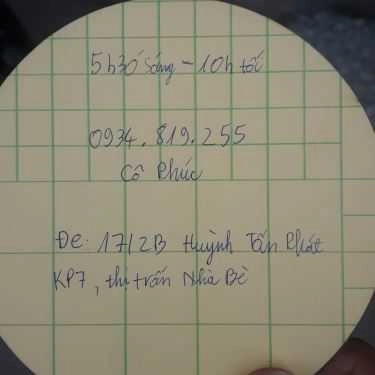 5h30 sáng - 10h tối
0934.819.255
Cô Phúc
Đc: 17/2B Huỳnh Tấn Phát
KP7, thị trấn Nhà Bè